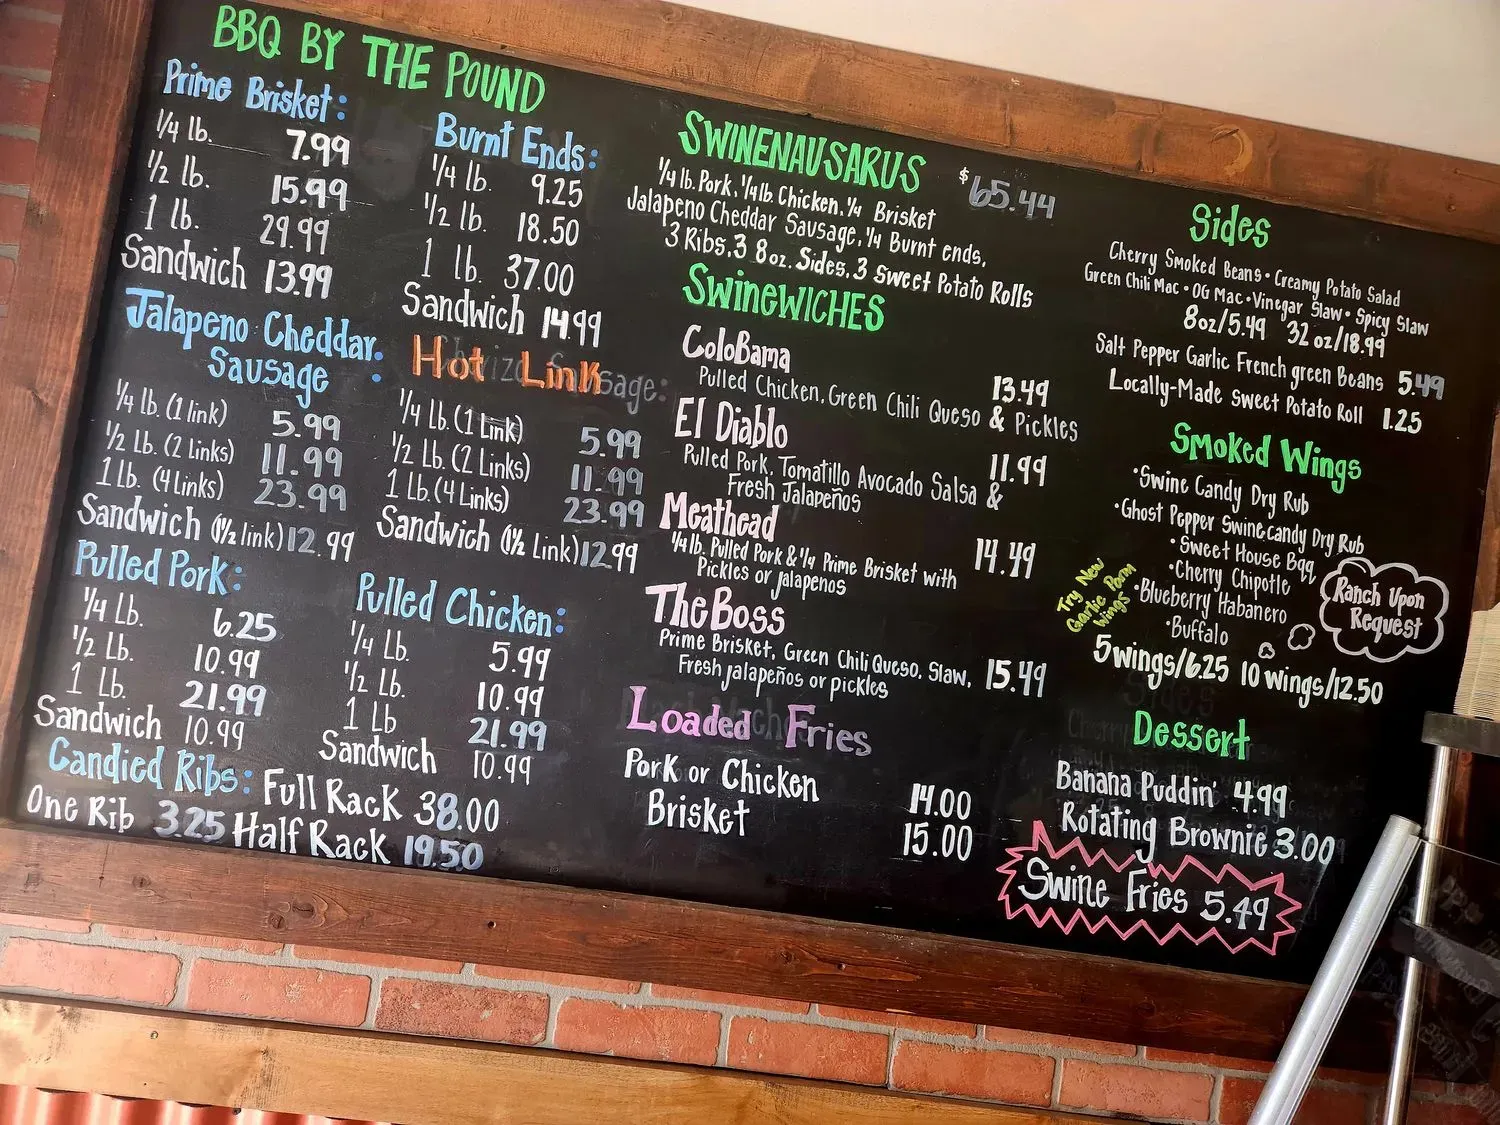 BBQ BY THE POUND
Prime Brisket:
1/4 lb. 7.99
1/2 lb. 15.99
1 lb. 29.99
Sandwich 13.99
Burnt Ends:
1/4 lb. 9.25
1/2 lb. 18.50
1 lb. 37.00
Sandwich 14.99
Jalapeno Cheddar
Sausage:
1/4 lb. (1 link) 5.99
1/2 Lb. (2 Links) 11.99
1 Lb. (4 Links) 23.99
Sandwich (1 1/2 link) 12.99
Hot Link
1/4 lb. (1 Link) 5.99
1/2 Lb. (2 Links) 11.99
1 Lb. (4 Links) 23.99
Sandwich (1 1/2 Link) 12.99
Pulled Pork:
1/4 Lb. 6.25
1/2 Lb. 10.99
1 Lb. 21.99
Sandwich 10.99
Pulled Chicken:
1/4 Lb. 5.99
1/2 Lb. 10.99
1 Lb 21.99
Sandwich 10.99
Candied Ribs: Full Rack 38.00
One Rib 3.25 Half Rack 19.50
SWINENAUSARUS $65.44
1/4 lb. Pork, 1/4 lb. Chicken, 1/4 Brisket
Jalapeno Cheddar Sausage, 1/4 Burnt ends,
3 Ribs, 3 8oz. Sides, 3 Sweet Potato Rolls
SWINEWICHES
ColoBama 13.49
Pulled Chicken, Green Chili Queso & Pickles
El Diablo 11.99
Pulled Pork, Tomatillo Avocado Salsa &
Fresh Jalapeños
Meathead 14.49
1/4 lb. Pulled Pork & 1/4 Prime Brisket with
Pickles or jalapenos
The Boss
Prime Brisket, Green Chili Queso, Slaw, 15.49
Fresh jalapeños or pickles
Loaded Fries
Pork or Chicken 14.00
Brisket 15.00
Sides
Cherry Smoked Beans • Creamy Potato Salad
Green Chili Mac • OG Mac • Vinegar Slaw • Spicy Slaw
8oz/5.49 32 oz/18.99
Salt Pepper Garlic French green Beans 5.49
Locally-Made Sweet Potato Roll 1.25
Smoked Wings
• Swine Candy Dry Rub
• Ghost Pepper Swinecandy Dry Rub
• Sweet House Bqq
• Cherry Chipotle
• Blueberry Habanero
• Buffalo
Try New
Garlic Parm
Wings
Ranch Upon
Request
5 wings/6.25 10 wings/12.50
Dessert
Banana Puddin' 4.99
Rotating Brownie 3.00
Swine Fries 5.49